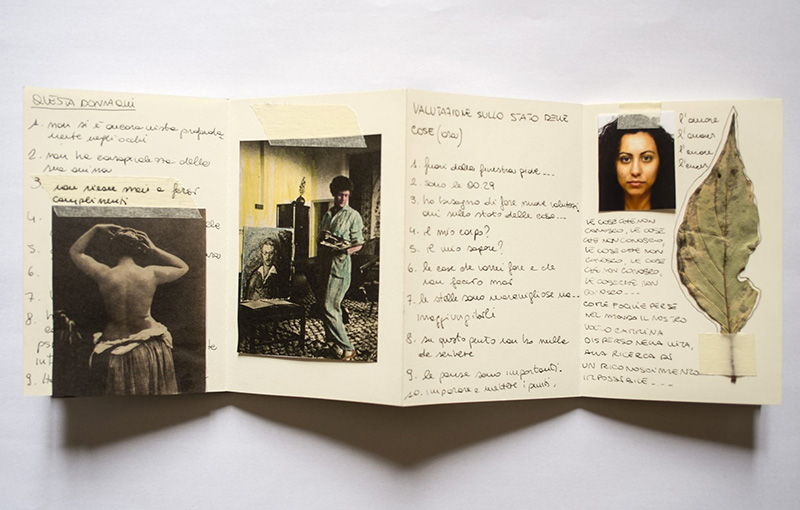 QUESTA DONNA QUI
1. non si è ancora vista profonda
mente negli occhi
2. non ha consapevolezza della
sua anima
3. non riesce mai a farsi
complimenti
4.
5.
6.
7.
8.
9.
VALUTAZIONE SULLO STATO DELLE
COSE (ora)
1. fuori dalla finestra piove....
2. sono le 00 29
3. ho bisogno di fare nuove valutazi
oni sullo stato delle cose...
4. il mio corpo?
5. il mio sapore?
6. le cose che vorrei fare e che
non faccio mai
7. le stelle sono meravigliose ma..
irraggiungibili
8. su questo punto non ho nulla
da scrivere
9. le pause sono importanti.
10. imparare a mettere i punti.
l'amore
l'amour
l'amore
l'amour
LE COSE CHE NON
CONOSCO, LE COSE
CHE NON CONOSCO,
LE COSE CHE NON
CONOSCO, LE COSE
CHE NON CONOSCO,
LE COSE CHE NON
CONOSCO....
COME FOGLIE PERSE
NEL MONDO IL NOSTRO
VOLTO CAMMINA
DISPERSO NELLA VITA,
ALLA RICERCA DI
UN RICONOSCIMENTO
IMPOSSIBILE...